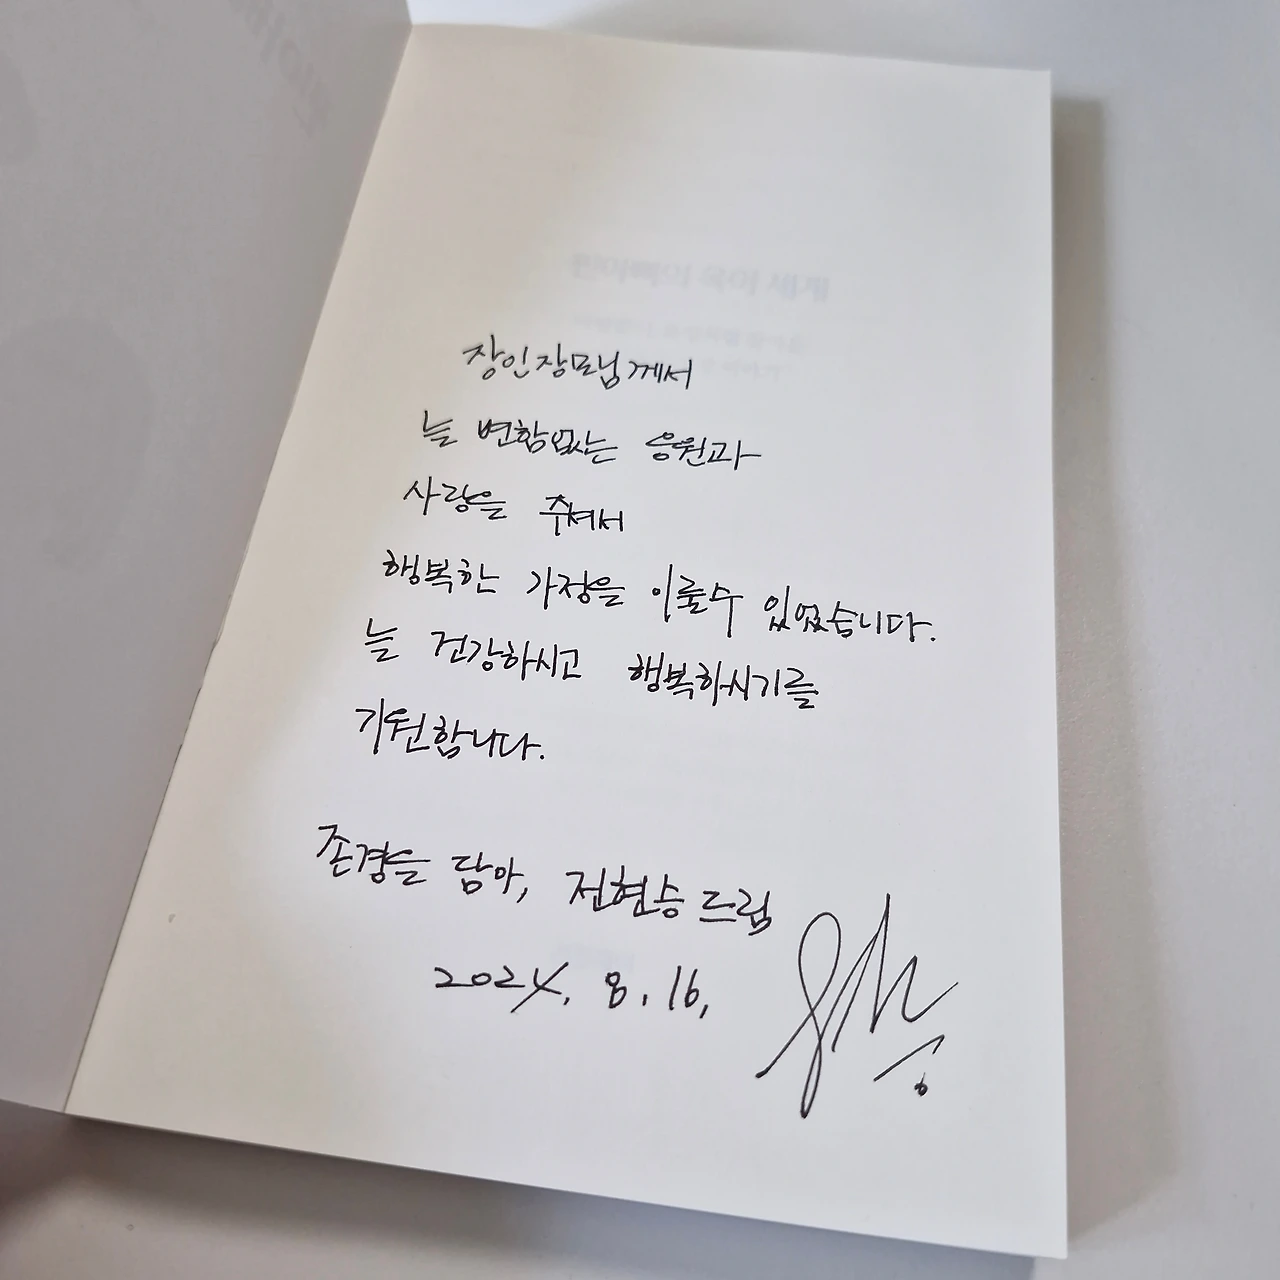 장인장모님께서
늘 변함없는 응원과
사랑을 주셔서
행복한 가정을 이룰수 있었습니다.
늘 건강하시고 행복하시기를
기원합니다.
존경을 담아, 전현승 드림
2024. 8. 16.